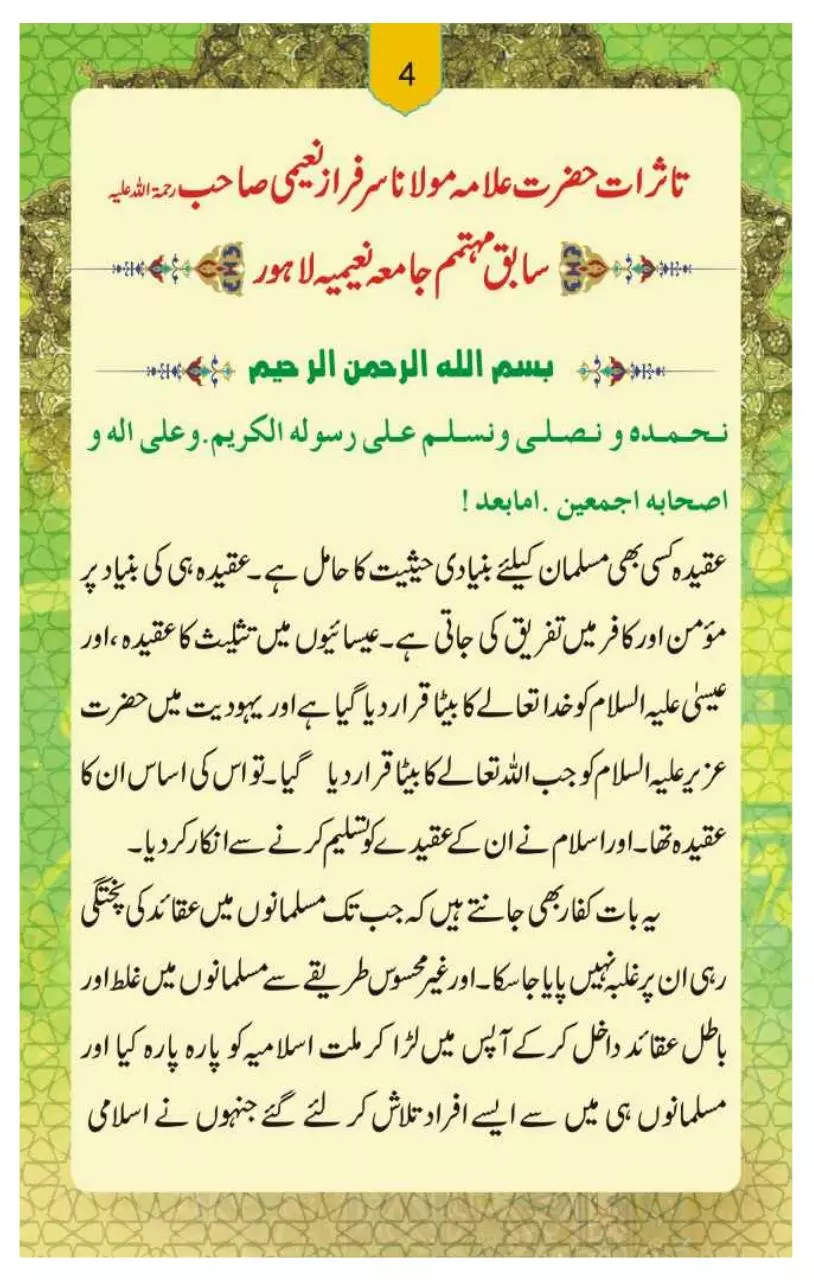 4
تاثرات حضرت علامہ مولانا سرفراز نعیمی صاحب رحمۃ اللہ علیہ
سابق مہتمم جامعہ نعیمیہ لاہور
بسم الله الرحمن الرحیم
نحمده و نصلی ونسلم علی رسوله الکریم.وعلی اله و
اصحابه اجمعین .امابعد !
عقیدہ کسی بھی مسلمان کیلئے بنیادی حیثیت کا حامل ہے۔عقیدہ ہی کی بنیاد پر
مؤمن اور کافر میں تفریق کی جاتی ہے۔عیسائیوں میں تثلیث کا عقیدہ،اور
عیسیٰ علیہ السلام کو خدا تعالے کا بیٹا قرار دیا گیا ہے اور یہودیت میں حضرت
عزیر علیہ السلام کو جب اللہ تعالے کا بیٹا قرار دیا گیا۔تو اس کی اساس ان کا
عقیدہ تھا۔اور اسلام نے ان کے عقیدے کو تسلیم کرنے سے انکار کر دیا۔
یہ بات کفار بھی جانتے ہیں کہ جب تک مسلمانوں میں عقائد کی پختگی
رہی ان پر غلبہ نہیں پایا جاسکا۔اور غیر محسوس طریقے سے مسلمانوں میں غلط اور
باطل عقائد داخل کر کے آپس میں لڑا کر ملت اسلامیہ کو پارہ پارہ کیا اور
مسلمانوں ہی میں سے ایسے افراد تلاش کر لئے گئے جنہوں نے اسلامی